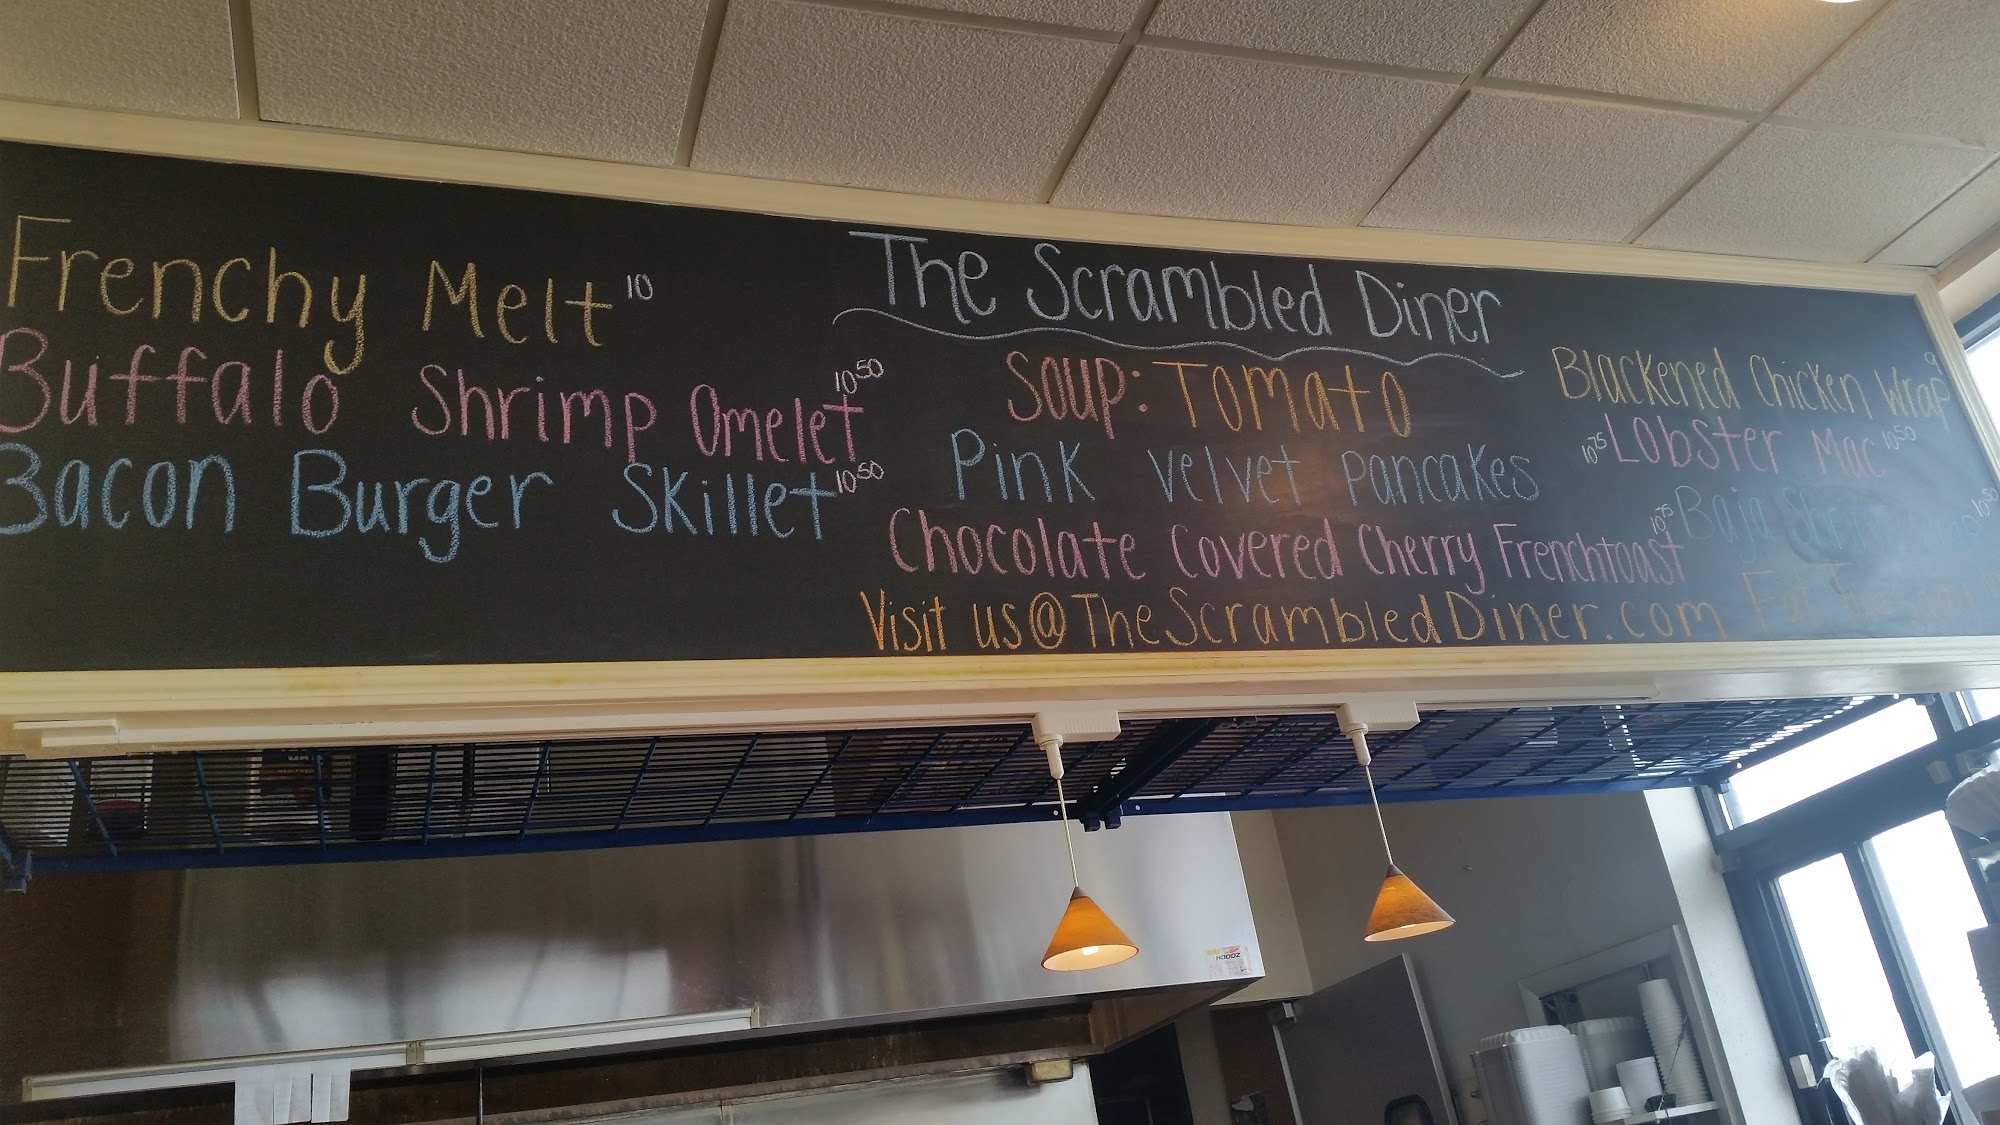 Frenchy Melt 10
Buffalo Shrimp Omelet 10 50
Bacon Burger Skillet 10 50
The Scrambled Diner
Soup: Tomato
Pink Velvet Pancakes 10 75
Chocolate Covered Cherry Frenchtoast 10 75
Visit us@TheScrambledDiner.com
Blackened Chicken Wrap 9
Lobster Mac 10 50
Baja 10 50
HOODZ